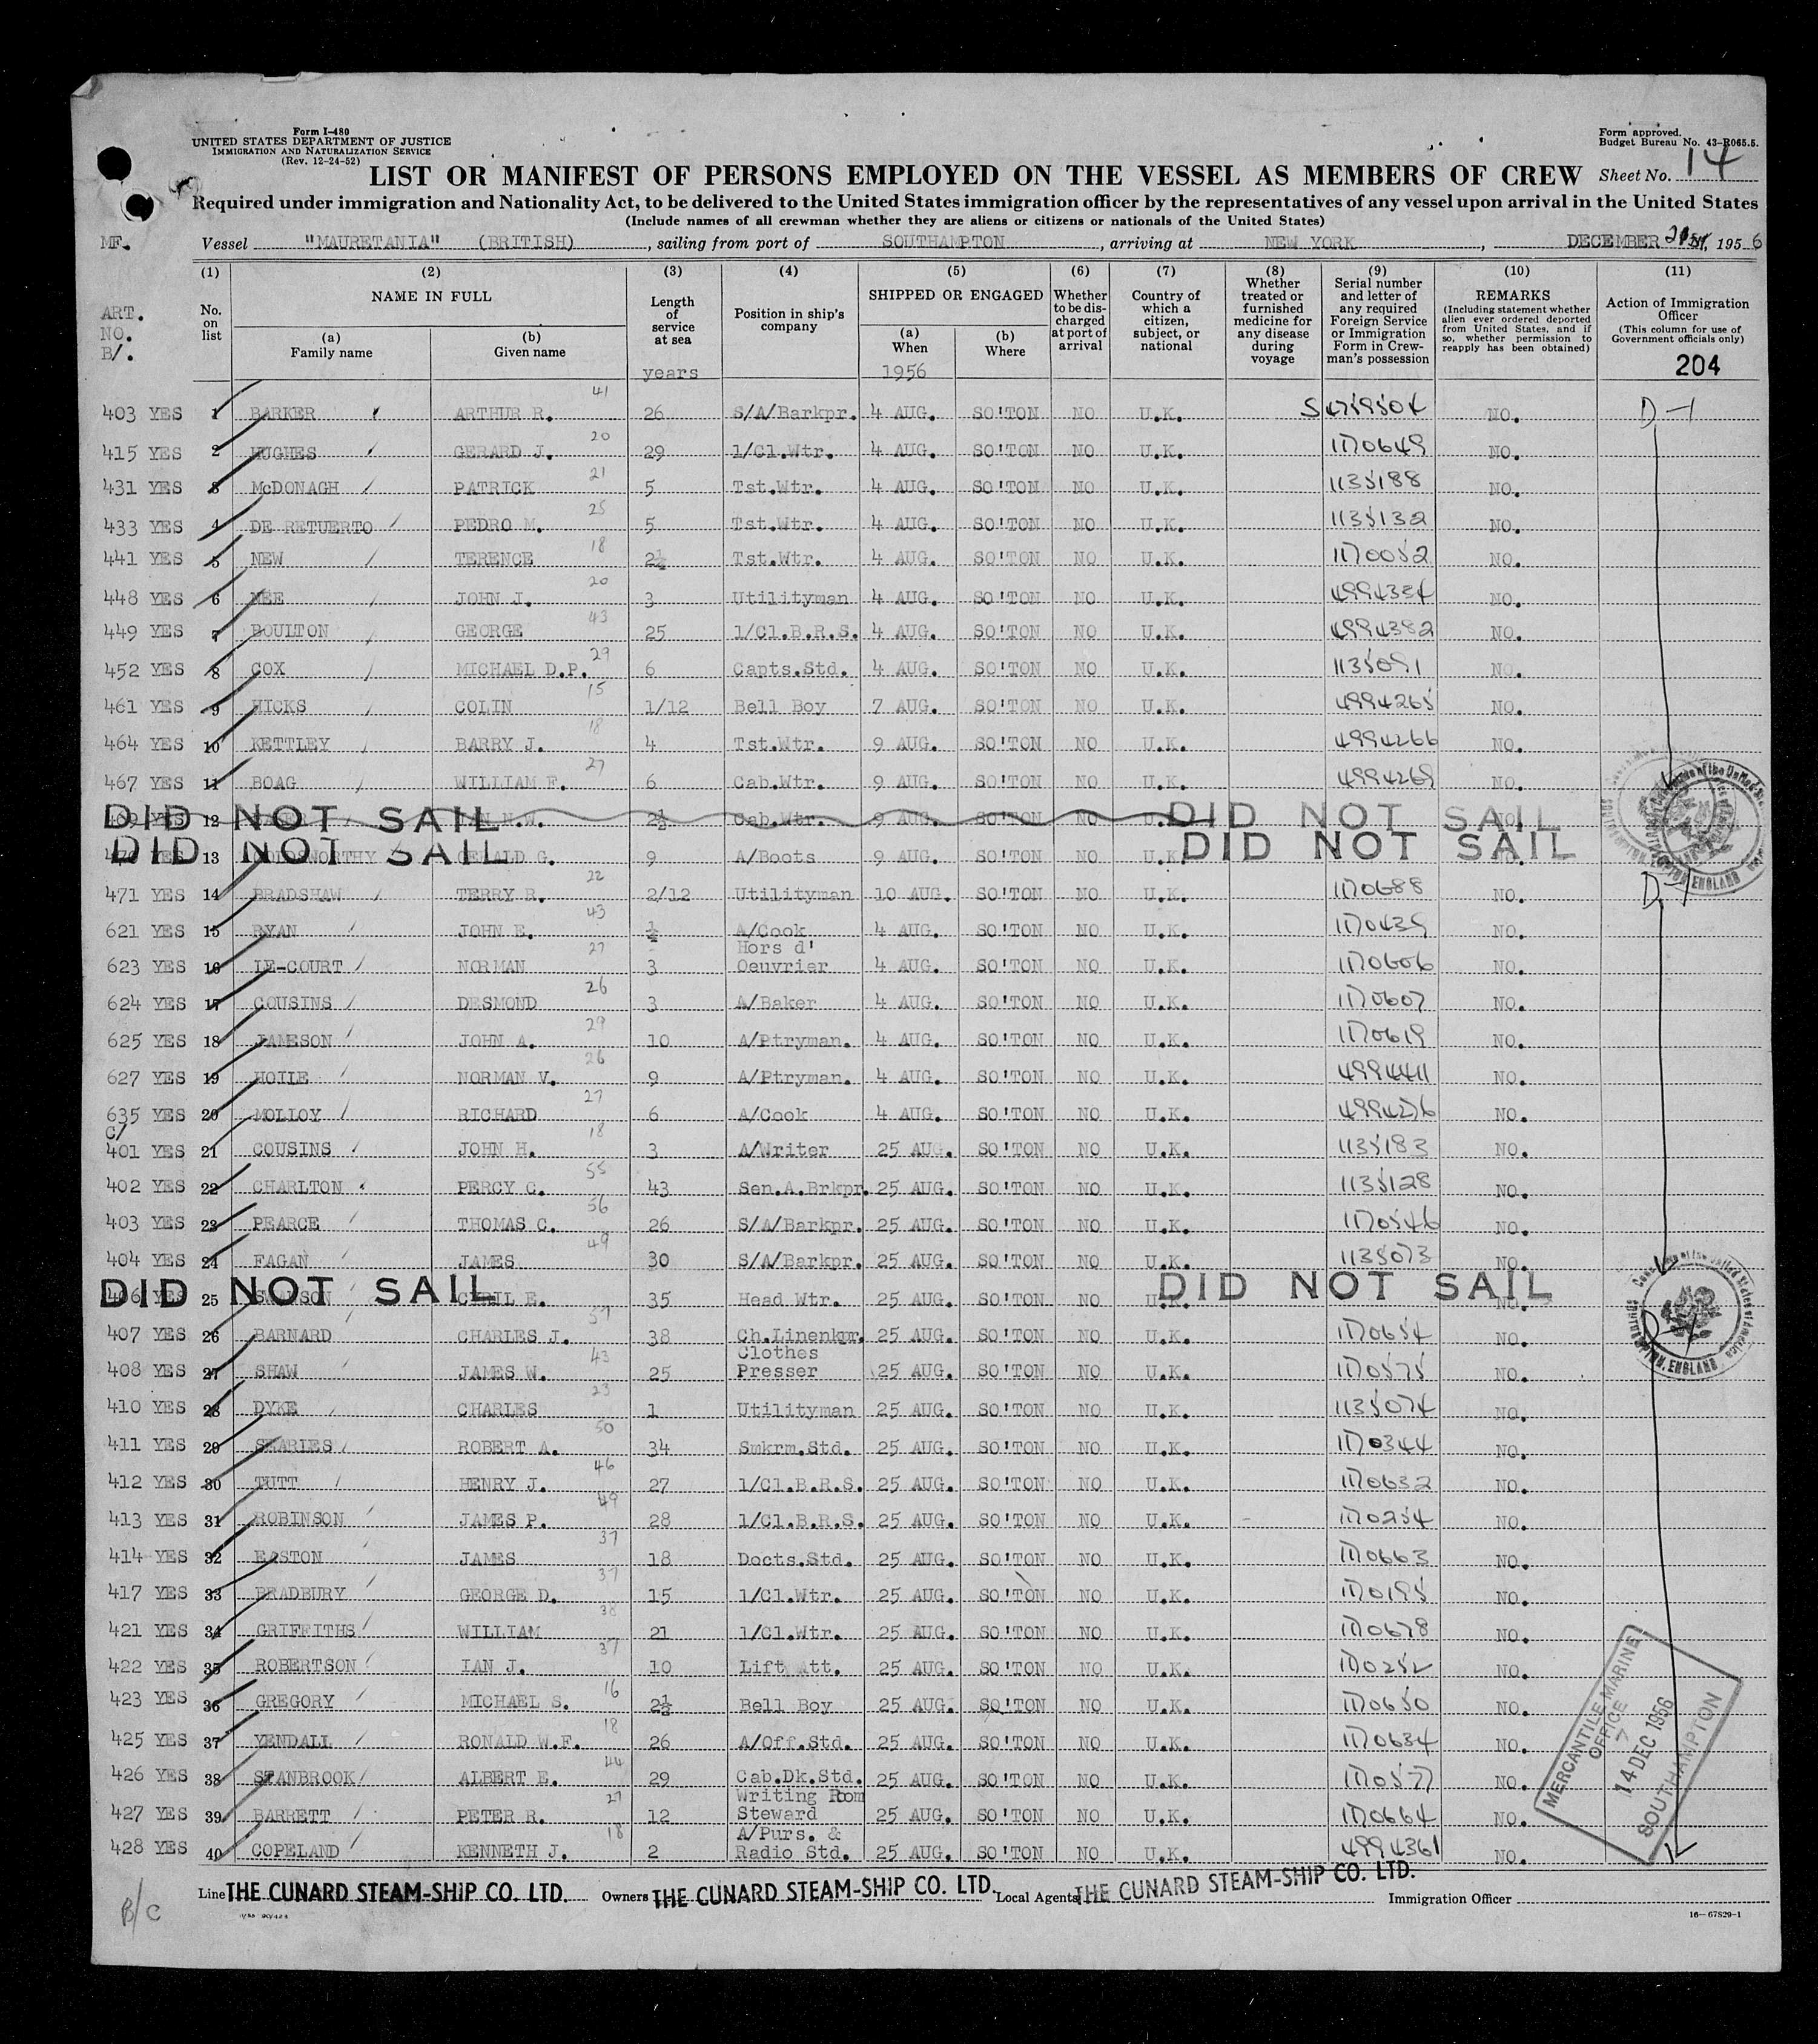 Form I-480
UNITED STATES DEPARTMENT OF JUSTICE
IMMIGRATION AND NATURALIZATION SERVICE
(Rev. 12-24-52)
Form approved.
Budget Bureau No. 43-R065.5.
LIST OR MANIFEST OF PERSONS EMPLOYED ON THE VESSEL AS MEMBERS OF CREW Sheet No. 14
Required under immigration and Nationality Act, to be delivered to the United States immigration officer by the representatives of any vessel upon arrival in the United States
(Include names of all crewman whether they are aliens or citizens or nationals of the United States)
MF. Vessel "MAURETANIA" (BRITISH), sailing from port of SOUTHAMPTON, arriving at NEW YORK, DECEMBER 21st, 1956
(1) (2) (3) (4) (5) (6) (7) (8) (9) (10) (11)
ART. NO. B/.
No. on list
NAME IN FULL
(a) Family name
(b) Given name
Length of service at sea
years
Position in ship's company
SHIPPED OR ENGAGED
(a) When
1956
(b) Where
Whether to be discharged at port of arrival
Country of which a citizen, subject, or national
Whether treated or furnished medicine for any disease during voyage
Serial number and letter of any required Foreign Service or Immigration Form in Crewman's possession
REMARKS
(Including statement whether alien ever ordered deported from United States, and if so, whether permission to reapply has been obtained)
Action of Immigration Officer
(This column for use of Government officials only)
204
403 YES 1 BARKER ARTHUR R. 41 26 S/A/Barkpr. 4 AUG. SO'TON NO U.K. S 4759504 NO. D-1
415 YES 2 HUGHES GERARD J. 20 29 1/Cl.Wtr. 4 AUG. SO'TON NO U.K. 1170649 NO.
431 YES 3 McDONAGH PATRICK 21 5 Tst.Wtr. 4 AUG. SO'TON NO U.K. 1135188 NO.
433 YES 4 DE RETUERTO PEDRO M. 25 5 Tst.Wtr. 4 AUG. SO'TON NO U.K. 1135132 NO.
441 YES 5 NEW TERENCE 18 2½ Tst.Wtr. 4 AUG. SO'TON NO U.K. 1170052 NO.
448 YES 6 NEE JOHN J. 20 3 Utilityman 4 AUG. SO'TON NO U.K. 4994334 NO.
449 YES 7 BOULTON GEORGE 43 25 1/Cl.B.R.S. 4 AUG. SO'TON NO U.K. 4994382 NO.
452 YES 8 COX MICHAEL D.P. 29 6 Capts.Std. 4 AUG. SO'TON NO U.K. 1135091 NO.
461 YES 9 HICKS COLIN 15 1/12 Bell Boy 7 AUG. SO'TON NO U.K. 4994265 NO.
464 YES 10 KETTLEY BARRY J. 18 4 Tst.Wtr. 9 AUG. SO'TON NO U.K. 4994266 NO.
467 YES 11 BOAG WILLIAM F. 27 6 Cab.Wtr. 9 AUG. SO'TON NO U.K. 4994269 NO.
DID NOT SAIL 12 2½ Cab.Wtr. 9 AUG. SO'TON NO DID NOT SAIL
DID NOT SAIL 13 GERALD G. 9 A/Boots 9 AUG. SO'TON NO U.K. DID NOT SAIL
471 YES 14 BRADSHAW TERRY R. 22 2/12 Utilityman 10 AUG. SO'TON NO U.K. 1170688 NO. D-1
621 YES 15 RYAN JOHN E. 43 ½ A/Cook 4 AUG. SO'TON NO U.K. 1170439 NO.
623 YES 16 LE-COURT NORMAN 27 3 Hors d' Oeuvrier 4 AUG. SO'TON NO U.K. 1170606 NO.
624 YES 17 COUSINS DESMOND 26 3 A/Baker 4 AUG. SO'TON NO U.K. 1170607 NO.
625 YES 18 JAMESON JOHN A. 29 10 A/Ptryman. 4 AUG. SO'TON NO U.K. 1170619 NO.
627 YES 19 HOILE NORMAN V. 26 9 A/Ptryman. 4 AUG. SO'TON NO U.K. 4994411 NO.
635 YES 20 MOLLOY RICHARD 27 6 A/Cook 4 AUG. SO'TON NO U.K. 4994276 NO.
C/
401 YES 21 COUSINS JOHN H. 18 3 A/Writer 25 AUG. SO'TON NO U.K. 1135183 NO.
402 YES 22 CHARLTON PERCY C. 55 43 Sen.A.Brkpr. 25 AUG. SO'TON NO U.K. 1135128 NO.
403 YES 23 PEARCE THOMAS C. 56 26 S/A/Barkpr. 25 AUG. SO'TON NO U.K. 1170546 NO.
404 YES 24 FAGAN JAMES 49 30 S/A/Barkpr. 25 AUG. SO'TON NO U.K. 1135073 NO.
DID NOT SAIL 25 SWANSON CECIL E. 35 Head Wtr. 25 AUG. SO'TON NO U.K. DID NOT SAIL
407 YES 26 BARNARD CHARLES J. 57 38 Ch.Linenkpr. 25 AUG. SO'TON NO U.K. 1170654 NO. D-1
408 YES 27 SHAW JAMES W. 43 25 Clothes Presser 25 AUG. SO'TON NO U.K. 1170575 NO.
410 YES 28 DYKE CHARLES 23 1 Utilityman 25 AUG. SO'TON NO U.K. 1135074 NO.
411 YES 29 SEARLES ROBERT A. 50 34 Smkrm.Std. 25 AUG. SO'TON NO U.K. 1170344 NO.
412 YES 30 TUTT HENRY J. 46 27 1/Cl.B.R.S. 25 AUG. SO'TON NO U.K. 1170632 NO.
413 YES 31 ROBINSON JAMES P. 49 28 1/Cl.B.R.S. 25 AUG. SO'TON NO U.K. 1170254 NO.
414 YES 32 EASTON JAMES 37 18 Docts.Std. 25 AUG. SO'TON NO U.K. 1170663 NO.
417 YES 33 BRADBURY GEORGE D. 37 15 1/Cl.Wtr. 25 AUG. SO'TON NO U.K. 1170195 NO.
421 YES 34 GRIFFITHS WILLIAM 38 21 1/Cl.Wtr. 25 AUG. SO'TON NO U.K. 1170678 NO.
422 YES 35 ROBERTSON IAN J. 37 10 Lift Att. 25 AUG. SO'TON NO U.K. 1170252 NO.
423 YES 36 GREGORY MICHAEL S. 16 2½ Bell Boy 25 AUG. SO'TON NO U.K. 1170650 NO.
425 YES 37 YENDALL RONALD W.F. 18 26 A/Off.Std. 25 AUG. SO'TON NO U.K. 1170634 NO.
426 YES 38 STANBROOK ALBERT E. 44 29 Cab.Dk.Std. 25 AUG. SO'TON NO U.K. 1170577 NO.
427 YES 39 BARRETT PETER R. 27 12 Writing Room Steward 25 AUG. SO'TON NO U.K. 1170664 NO.
428 YES 40 COPELAND KENNETH J. 18 2 A/Purs. & Radio Std. 25 AUG. SO'TON NO U.K. 4994361 NO.
MERCANTILE MARINE OFFICE
7
14 DEC 1956
SOUTHAMPTON
B/C
Line THE CUNARD STEAM-SHIP CO. LTD. Owners THE CUNARD STEAM-SHIP CO. LTD. Local Agents THE CUNARD STEAM-SHIP CO. LTD. Immigration Officer
16—67829-1